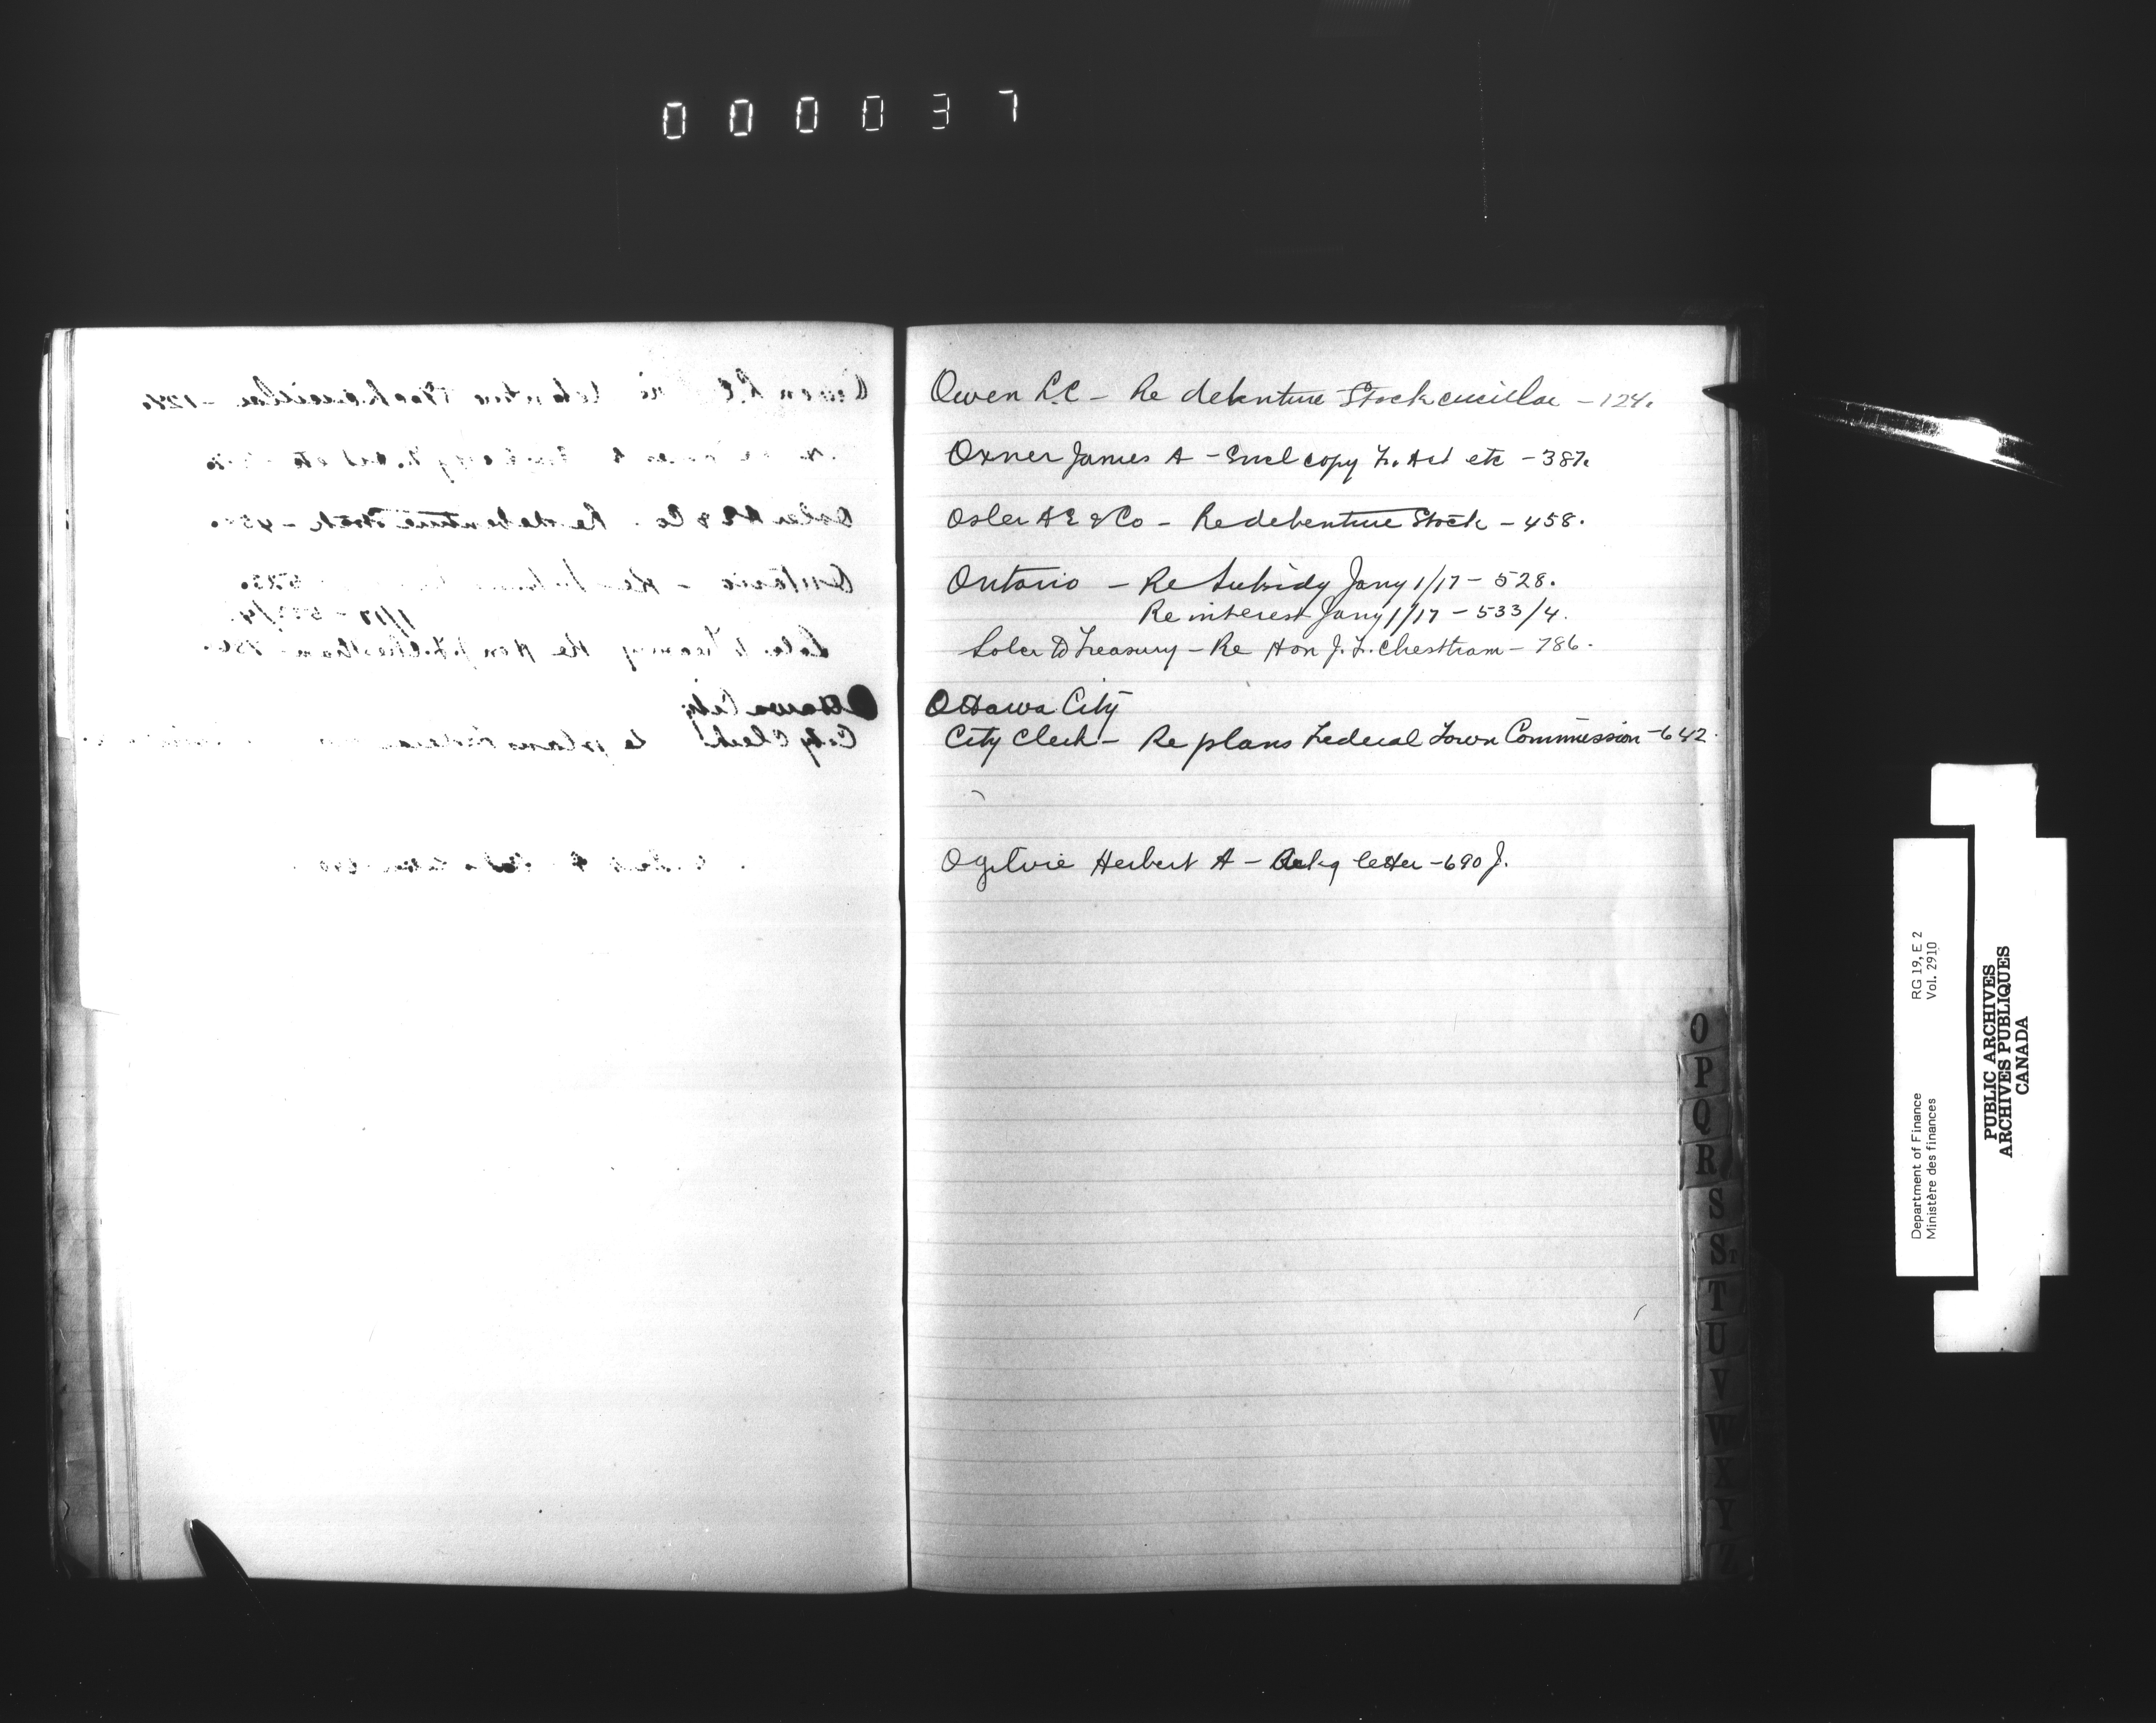 000037
Owen L.C - Re debenture Stock circular - 124.
Oxner James A - Encl copy F. Act etc - 387.
Osler A E & Co - Re debenture Stock - 458.
Ontario - Re Subsidy Jany 1/17 - 528.
Re interest Jany 1/17 - 533/4.
to Treasury - Re Hon J. F. - 786.
Ottawa City
City Clerk - Re plans Federal Town Commission - 642.
Ogilvie Herbert A - Ackg letter - 690 J.
O
P
Q
R
S
S
T
U
V
W
X
Y
Z
Department of Finance RG 19, E 2
Ministère des finances Vol. 2910
PUBLIC ARCHIVES
ARCHIVES PUBLIQUES
CANADA